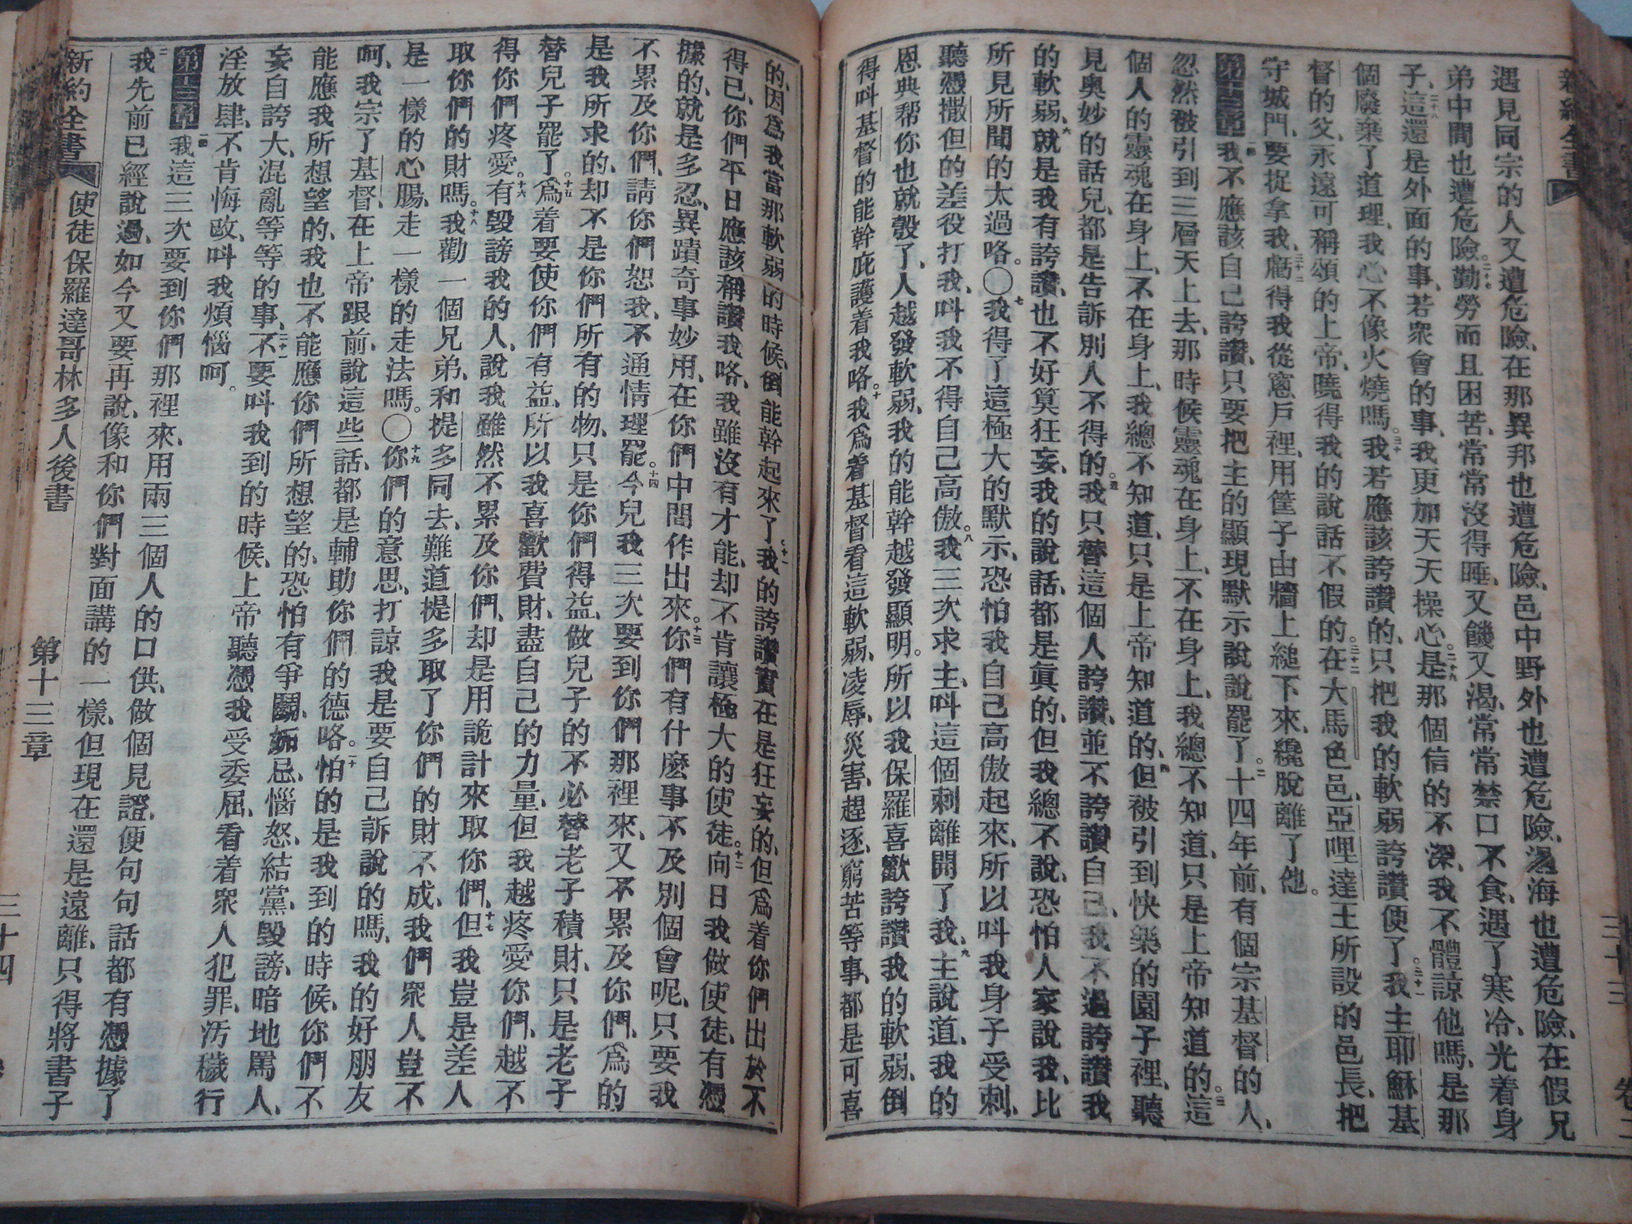 遇見同宗的人又遭危險、在那異邦也遭危險、邑中野外也遭危險、過海也遭危險、在假兄
弟中間也遭危險、二十七勤勞而且困苦、常常沒得睡、又饑又渴、常常禁口不食、遇了寒冷、光着身
子、二十八這還是外面的事、若衆會的事、我更加天天操心。二十九是那個信的不深、我不體諒他嗎、是那
個廢棄了道理、我心不像火燒嗎。三十我若應該誇讚的、只把我的軟弱誇讚便了。三十一我主耶穌基
督的父、永遠可稱頌的上帝、曉得我的說話不假的。三十二在大馬色邑、亞哩達王所設的邑長、把
守城門、要捉拿我、三十三得我從窻戶裡、用筐子由牆上縋下來、纔脫離了他。
第十二章 我不應該自己誇讚、只要把主的顯現默示說說罷了。二十四年前、有個宗基督的人、
忽然被引到三層天上去、那時候靈魂在身上、不在身上、我總不知道、只是上帝知道的。三這
個人的靈魂在身上、不在身上、我總不知道、只是上帝知道的、四但被引到快樂的園子裡、聽
見奥妙的話兒、都是告訴別人不得的。五我只替這個人誇讚、並不誇讚自己、我不過誇讚我
的軟弱、六就是我有誇讚、也不好算狂妄、我的說話、都是眞的、但我總不說、恐怕人家說我、比
所見所聞的太過咯。〇七我得了這極大的默示、恐怕我自己高傲起來、所以呌我身子受刺、
聽憑撒但的差役打我、呌我不得自己高傲。八我三次求主、呌這個刺離開了我、九主說道、我的
恩典帮你也就彀了、人越發軟弱、我的能幹越發顯明。所以我保羅喜歡誇讚我的軟弱、倒
得呌基督的能幹庇護着我咯。十我爲着基督、看這軟弱、凌辱、災害、趕逐、窮苦等事、都是可喜
的、因爲我當那軟弱的時候、倒能幹起來了。十一我的誇讚實在是狂妄的、但爲着你們出於不
得已、你們平日應該稱讚我咯、我雖沒有才能、却不肯讓極大的使徒。十二向日我做使徒、有憑
據的、就是多忍、異蹟奇事妙用、在你們中間作出來。十三你們有什麼事不及別個會呢、只要我
不累及你們、請你們恕我不通情理罷。十四今兒我三次要到你們那裡來、又不累及你們、爲的
是我所求的、却不是你們所有的物、只是你們得益、做兒子的不必替老子積財、只是老子
替兒子罷了。十五爲着要使你們有益、所以我喜歡費財、盡自己的力量、但我越疼愛你們、越不
得你們疼愛。十六有毀謗我的人、說我雖然不累及你們、却是用詭計來取你們、十七但我豈是差人
取你們的財嗎。十八我勸一個兄弟、和提多同去、難道提多取了你們的財不成、我們衆人豈不
是一樣的心腸、走一樣的走法嗎。〇十九你們的意思、打諒我是要自己訴說的嗎、我的好朋友
呵、我宗了基督、在上帝跟前、說這些話、都是輔助你們的德咯。二十怕的是我到的時候、你們不
能應我所想望的、我也不能應你們所想望的、恐怕有爭鬭、妬忌、惱怒、結黨、毀謗、暗地罵人、
妄自誇大、混亂等等的事、二十一不要呌我到的時候、上帝聽憑我受委屈、看着衆人犯罪、汚穢行
淫放肆、不肯悔改、呌我煩惱呵。
第十三章 一我這三次要到你們那裡來、用兩三個人的口供、做個見證、便句句話都有憑據了
二我先前已經說過、如今又要再說、像和你們對面講的一樣、但現在還是遠離、只得將書子
新約全書 使徒保羅達哥林多人後書 第十三章 三十四